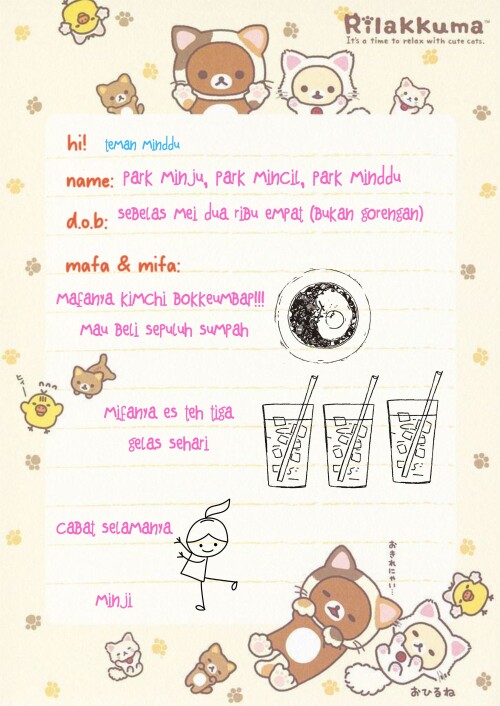 Rilakkuma™
It's a time to relax with cute cats.
hi! teman minddu
name: park minju, park mincil, park minddu
d.o.b: sebelas mei dua ribu empat (bukan gorengan)
mafa & mifa:
mafanya kimchi bokkeumbap!!!
mau beli sepuluh sumpah
ピィー
mifanya es teh tiga
gelas sehari
cabat selamanya
おきれにゃい…
minji
おひるね